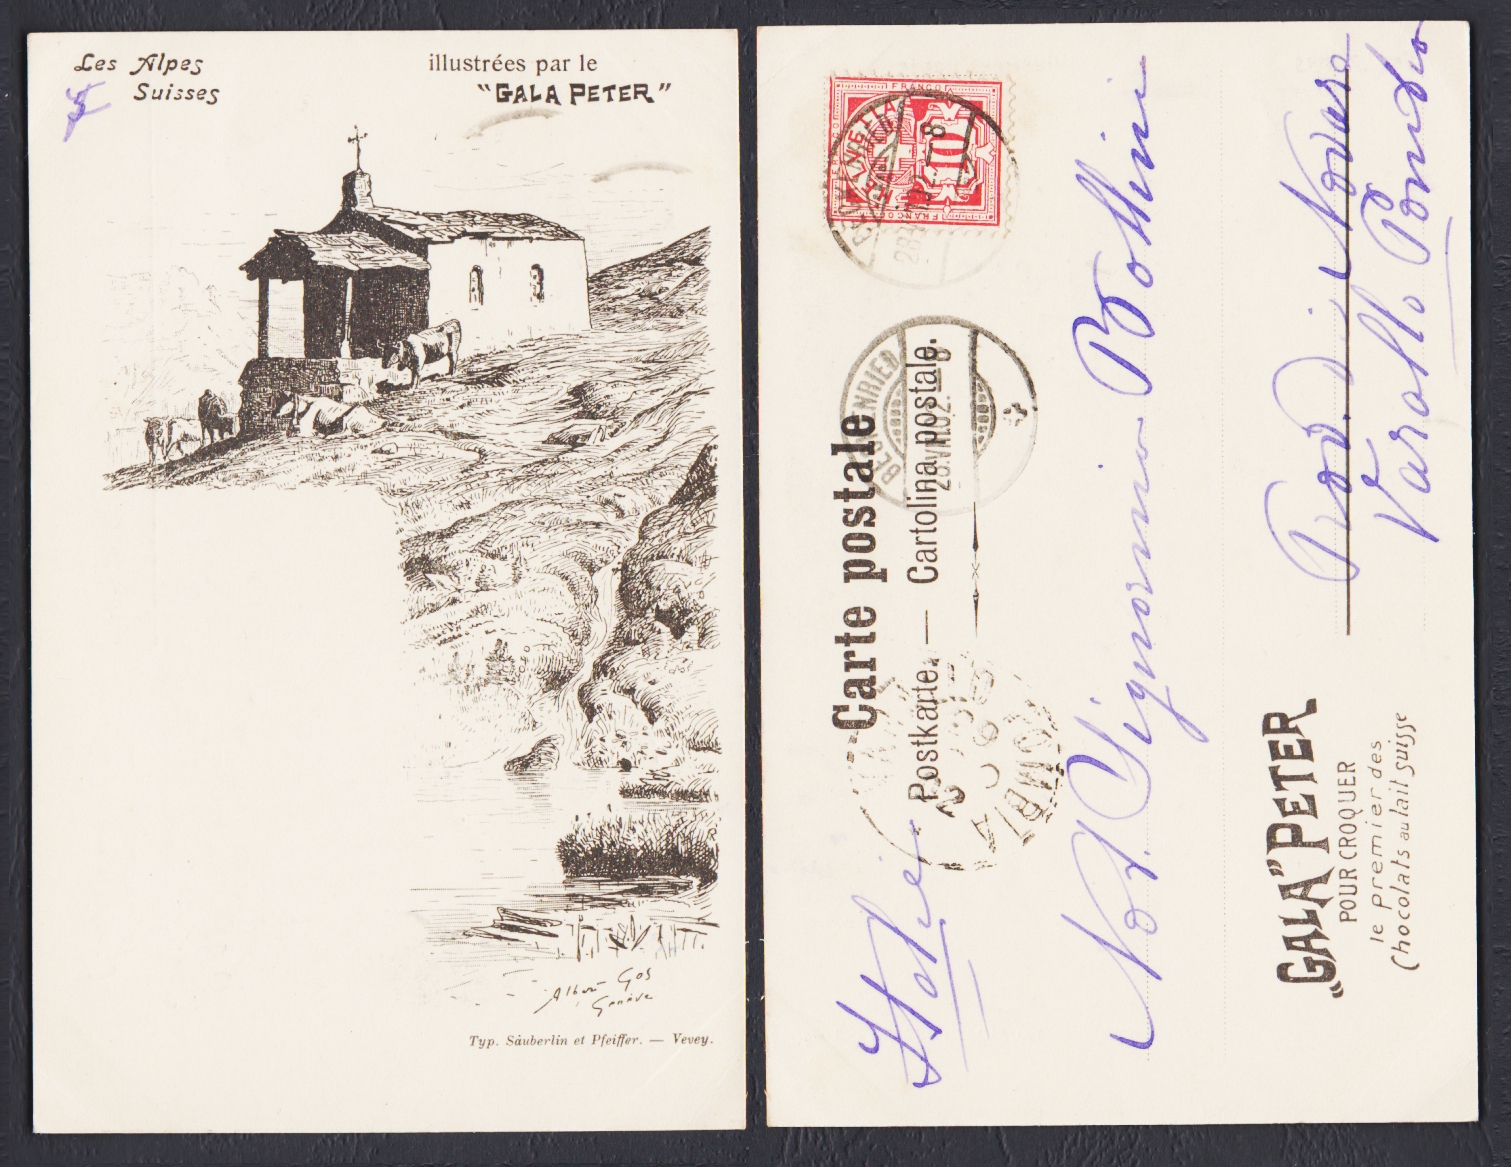 Les Alpes
Suisses
illustrées par le
"GALA PETER"
Albert Gos
Genève
Typ. Säuberlin et Pfeiffer. — Vevey.
FRANCO
10
FRANCO
BECKENRIED
BECKENRIED
28.VII.02.—8
Carte postale
Postkarte. — Cartolina postale.
Italie
Not. Gignomino Bollini
Prov. di Novara
Varallo Pombia
"GALA" PETER
POUR CROQUER
le premier des
Chocolats au lait suisse